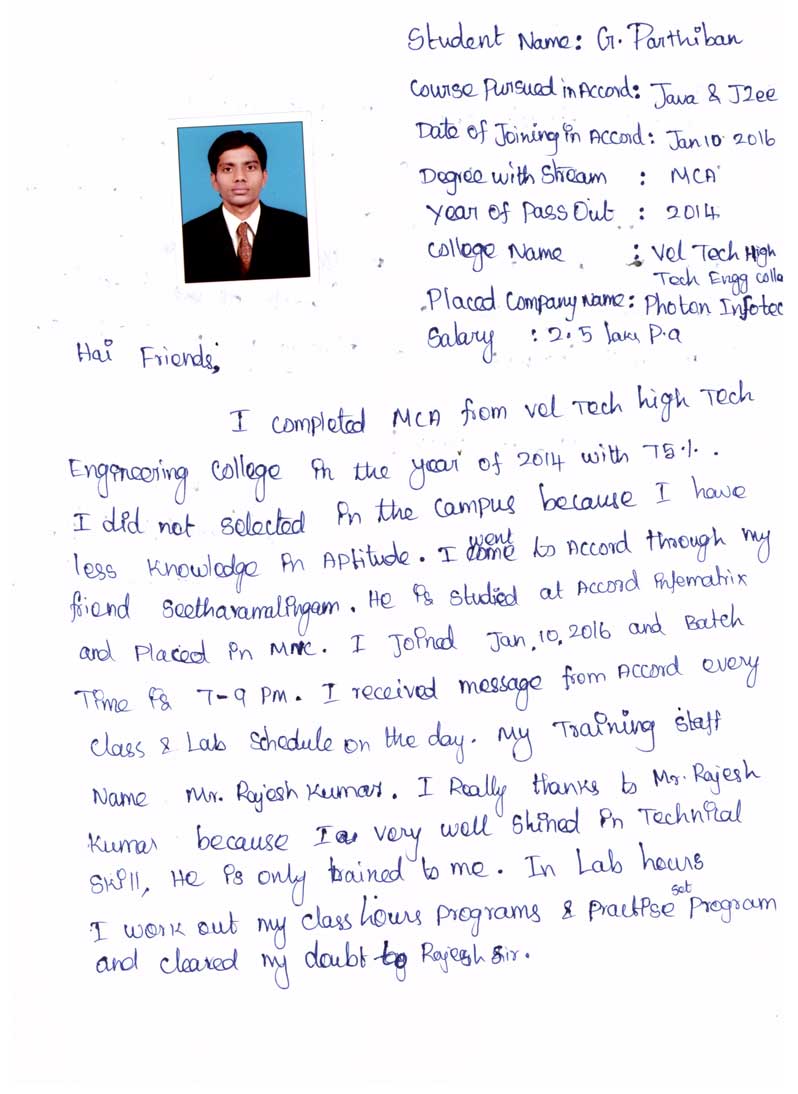 Student Name: G. Parthiban
Course Pursued in Accord: Java & J2ee
Date of Joining in Accord: Jan 10 2016
Degree with Stream : MCA
Year of Pass Out : 2014
College Name : Vel Tech High
Tech Engg colle
Placed Company Name: Photon Infotec
Salary : 2.5 laks P.a
Hai Friends,
I completed MCA from vel Tech high Tech
Engineering college in the year of 2014 with 75%.
I did not selected in the campus because I have
less knowledge in Aptitude. I went to Accord through my
friend Seetharamalingam. He is studied at Accord Infomatrix
and Placed in MNC. I Joined Jan,10,2016 and Batch
Time is 7-9 PM. I received message from Accord every
class & Lab Schedule on the day. My Training staff
Name Mr. Rajesh Kumar. I Really thanks to Mr. Rajesh
Kumar because I very well shined in Technical
Skill, He is only trained to me. In Lab hours
I work out my class hours programs & practise set program
and cleared my doubt by Rajesh sir.